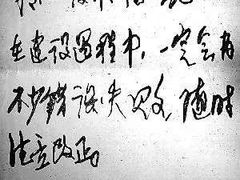 在建设过程中，一定会有
不少错误失败，随时
注意改正。